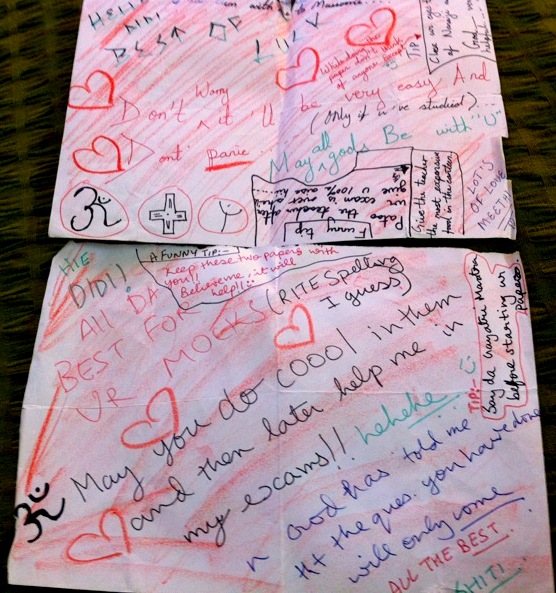 HEllO
DIDI
BEST OF
Don't Worry it'll be very easy. And
(Only if u've studied)...
Whiledoing the
paper don't think
of anyone except
TIP
Good
Dont' panic
May all gods Be with "U"
Funny tip
Patao the teacher after
ur exam is over a
give u 100%
Give the teacher
the most expensive
LOT'S
OF LOVE
A FUNNY TIP:-
Keep these two papers with
you!!
Believe me, it will
help!!
HIE
DIDI!
All DA
BEST FOR
UR MOCKS (RITE Spelling
I guess)
TIP:-
Say da Gayatri Mantra
before starting ur
papers
May you do COOOl in them
and then later help me in
my excams!! hehehe
n God has told me
tht the ques. you have done
will only come
All THE BEST.